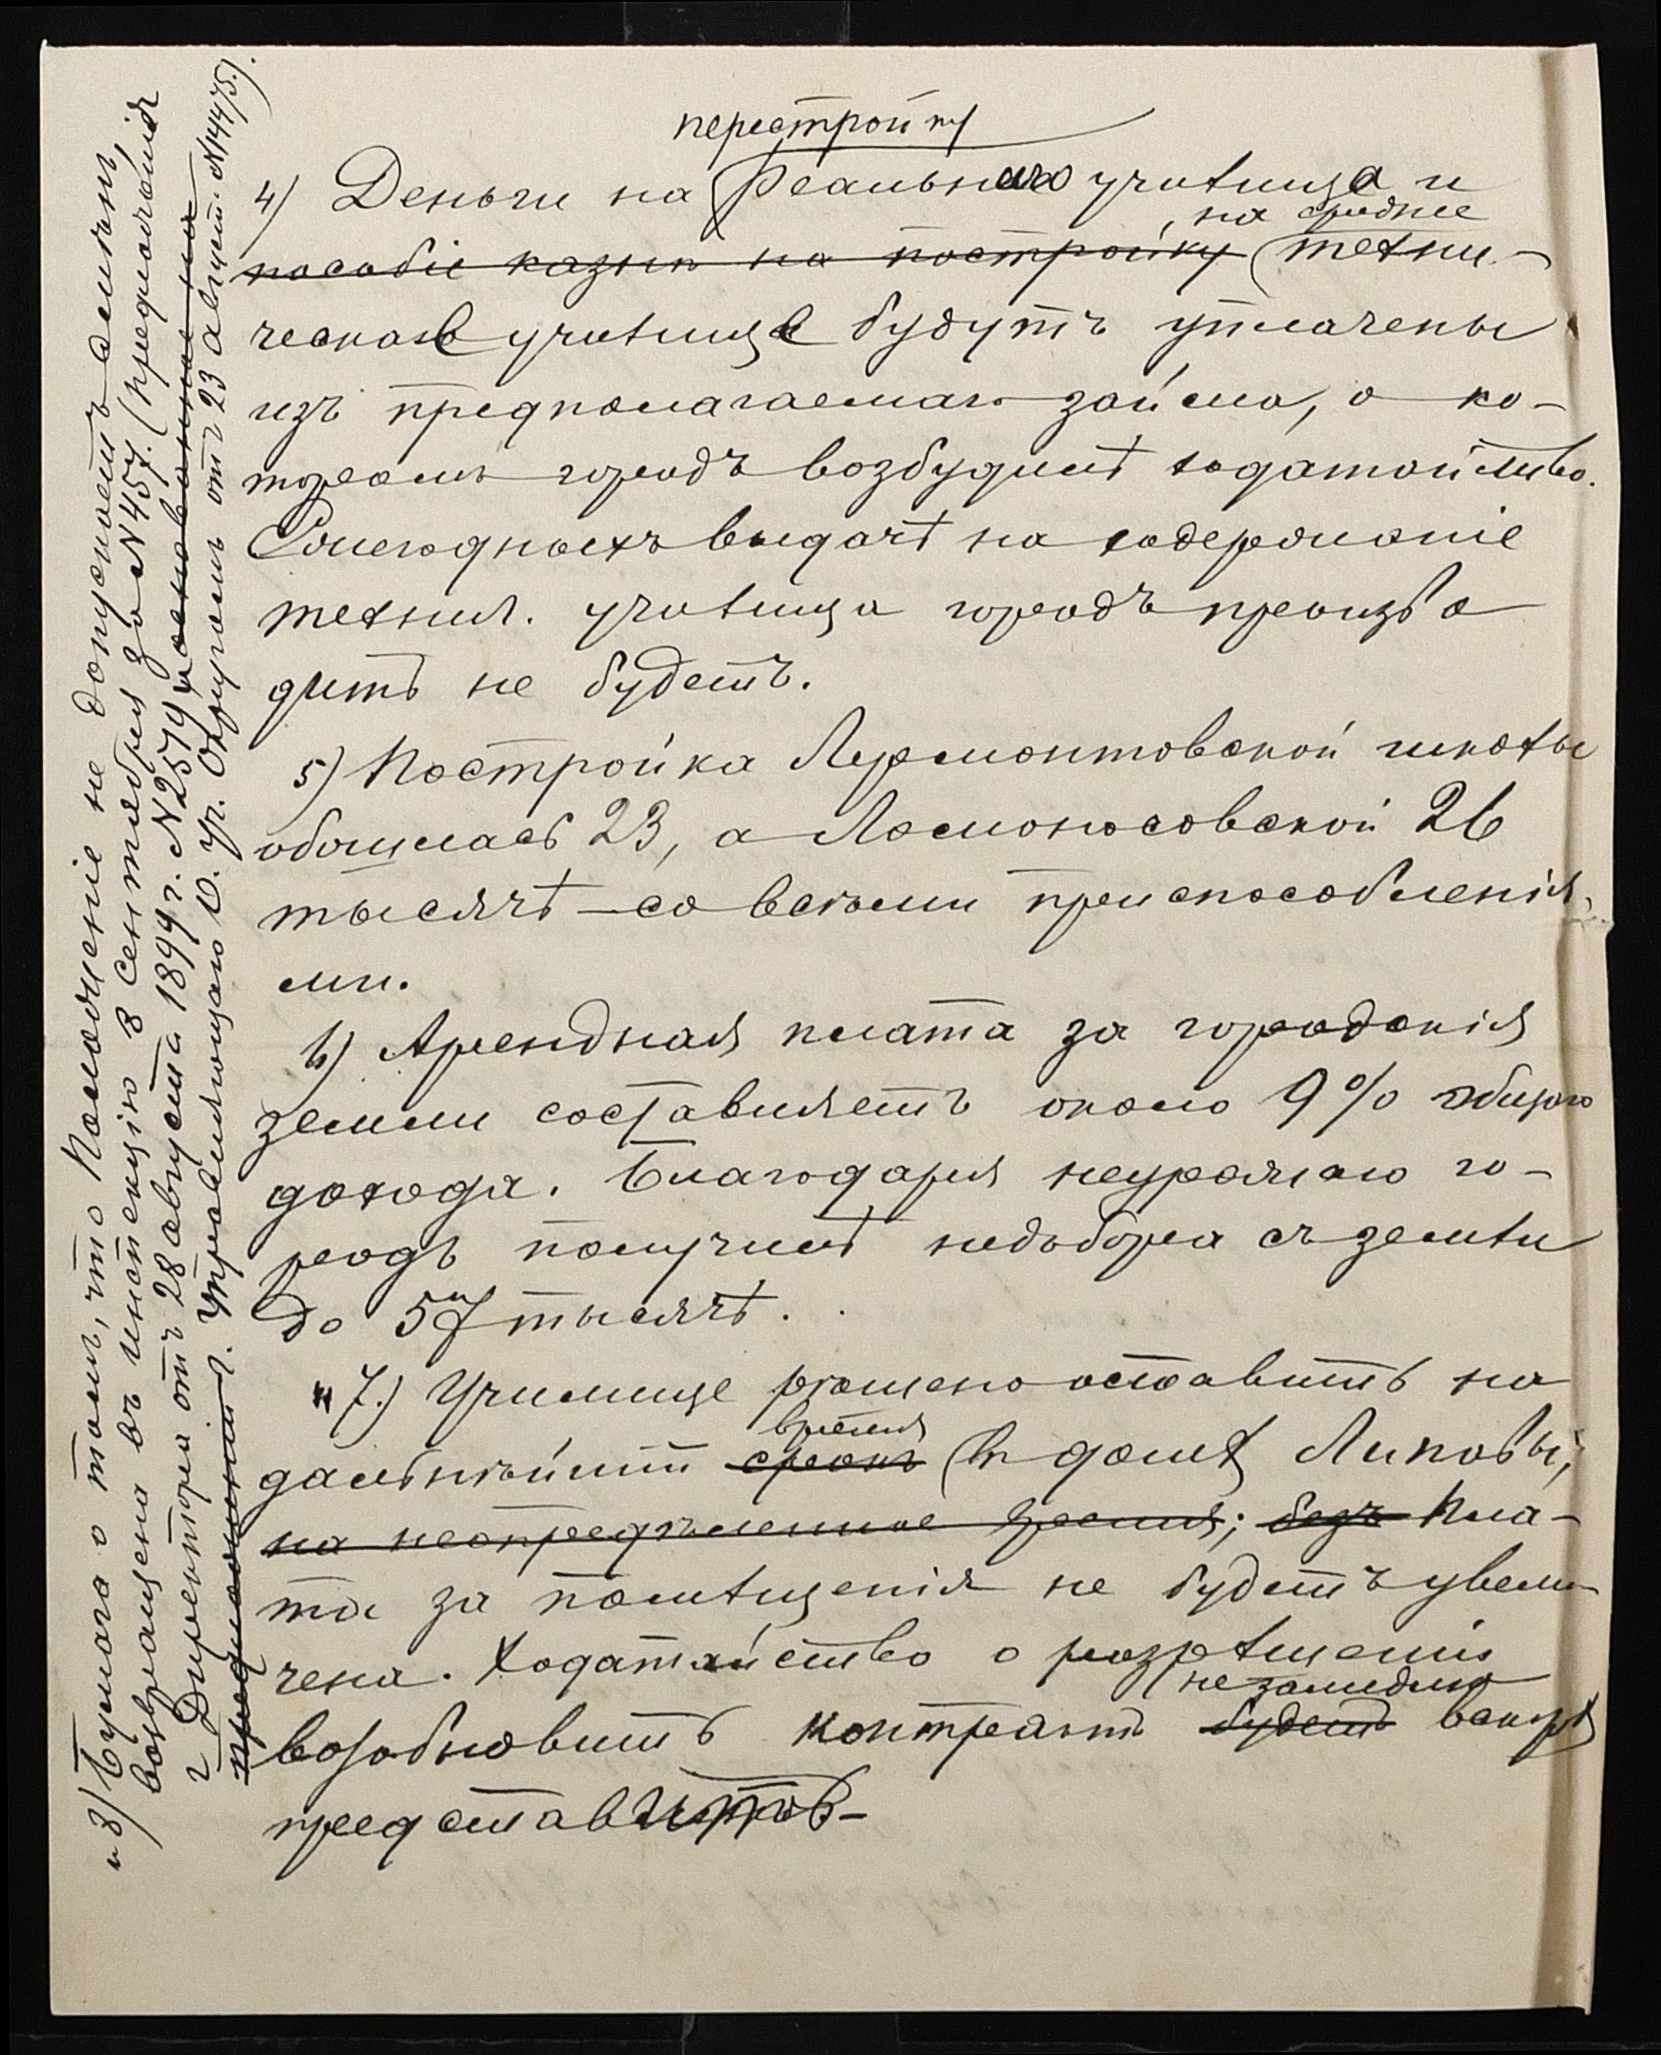 перестройку
4) Деньги на Реальнаго училища и
на среднее
пособіе казны на постройку техни-
ческое училище будутъ уплачены
изъ предполагаемаго займа, о ко-
торомъ городъ возбудитъ ходатайство.
Ежегодныхъ выдачъ на содержаніе
технич. училища городъ произво
дить не будетъ.
5) Постройка Лермонтовской школы
обошлась 23, а Ломоносовской 26
тысячъ со всѣми приспособленія
ми.
6) Арендная плата за городскія
земли составляетъ около 9% общаго
дохода. Благодаря неурожаю го-
родъ получитъ недоборъ съ земли
до 5 и 7 тысячъ.
"7.) Училище рѣшено оставить на
время
дальнѣйшій срокъ въ домѣ Липовы,
на неопредѣленное время; безъ Пла-
та за помѣщенія не будетъ увели
чена. Ходатайство о разрѣшеніи
незамедли
возобновить контрактъ будетъ вскорѣ
представить-
и 8) Бумага о томъ, что Положеніе не допускаетъ отмѣны,
возвращена въ инспекцію 3 сентября за №457. (предложенія
г Директора отъ 28 августа 1899 г. №2579 основанное на
предложеніи г. Управляющаго О. уч. Округомъ отъ 23 августа №14475.).